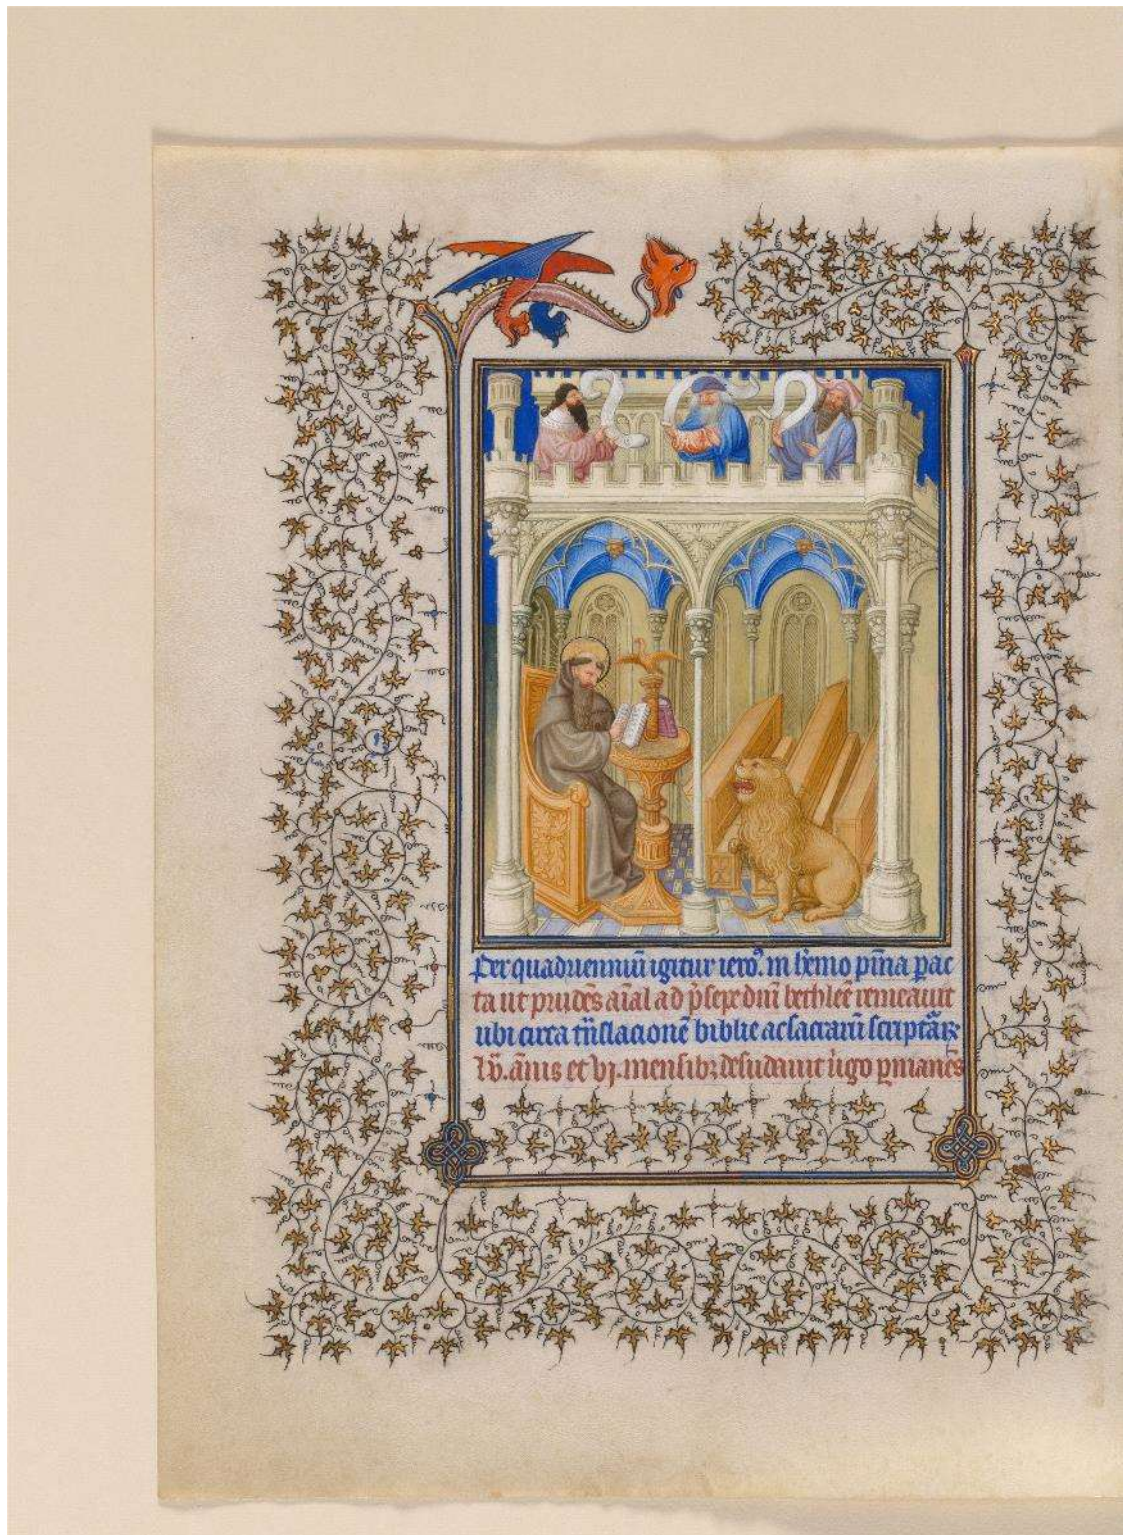 Per quadrienniū igitur iero⁹. in h̄emo pn̄ia pac
ta ut prudēs aīal ad p̄sepe dnī bethleē remeauit
ubi circa tn̄slacionē biblie ac sacrarū scriptārꝝ
lv. ānis et vj. mensibꝫ desudauit ūigo ꝑmanēs